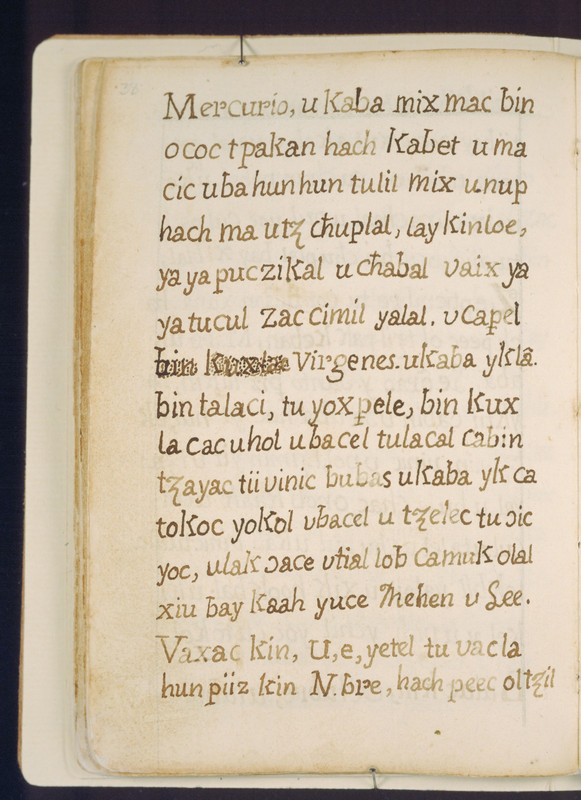 Mercurio, u kaba mix mac bin
ococ tpakan hach kabet uma
cic uba hun hun tulil mix unup
hach ma utꜩ cħuplal, lay kinloe,
ya ya puczikal u cħabal vaix ya
ya tucul zac cimil yalal. v capel
bin Virgenes. ukaba yklã.
bin talaci, tu yoxpele, bin kux
la cac uhol ubacel tulacal cabin
tꜩayac tii vinic bubas ukaba yk ca
tokoc yokol vbacel u tꜩelec tu ɔic
yoc, ulak ɔace vtial lob camuk olal
xiu bay kaah yuce hehen u See.
Vaxac kin, U, e, yetel tu vacla
hun piiz kin N.bre, hach peec oltꜩil